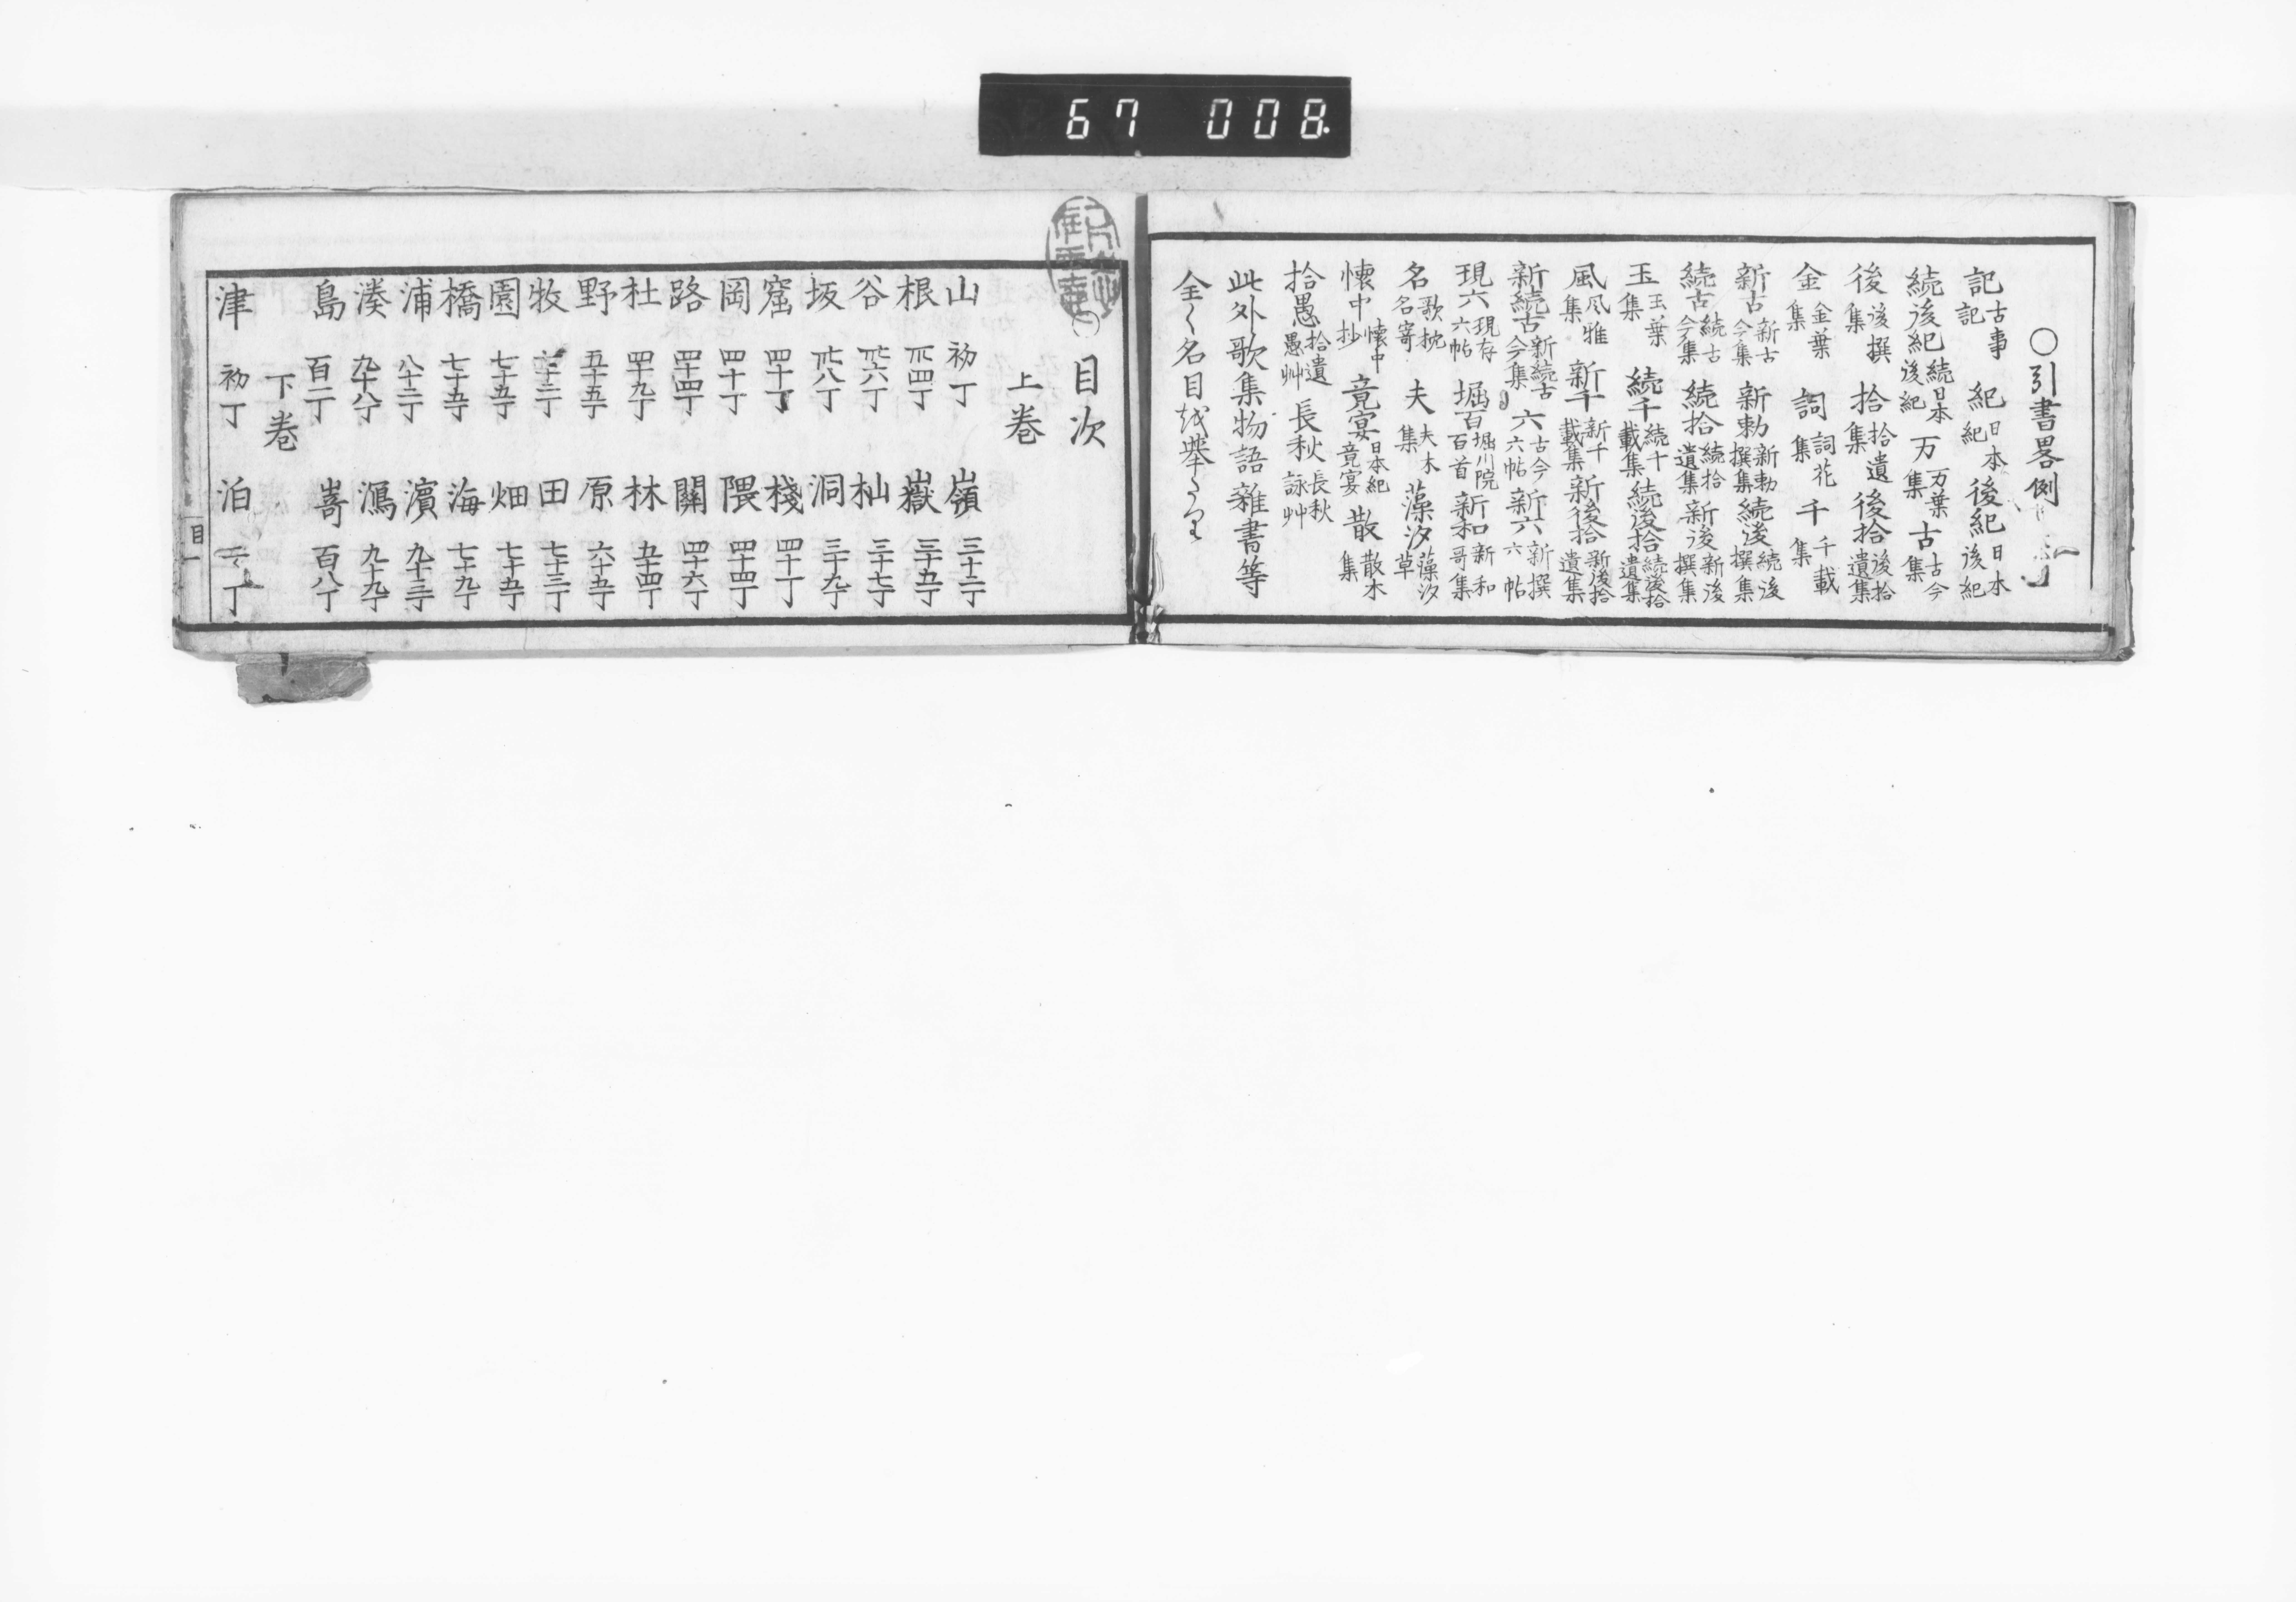 67 008
○引書畧例
記 古事記 紀 日本紀 後紀 日本後紀
続後紀 続日本後紀 万 万葉集 古 古今集
後 後撰集 拾 拾遺集 後拾 後拾遺集
金 金葉集 詞 詞花集 千 千載集
新古 新古今集 新勅 新勅撰集 続後 続後撰集
続古 続古今集 続拾 続拾遺集 新後 新後撰集
玉 玉葉集 続千 続千載集 続後拾 続後拾遺集
風 風雅集 新千 新千載集 新後拾 新後拾遺集
新続古 新続古今集 六 古今六帖 新六 新撰六帖
現六 現存六帖 堀百 堀川院百首 新和 新和哥集
名 歌枕名寄 夫 夫木集 藻汐 藻汐草
懐中 懐中抄 竟宴 日本紀竟宴 散 散木集
拾愚 拾遺愚艸 長秋 長秋詠艸
此外歌集物語雜書等
全く名目越舉
目次
上巻
山 初丁 嶺 三十二丁
根 廿四丁 嶽 三十五丁
谷 廿六丁 杣 三十七丁
坂 廿八丁 洞 三十九丁
窟 四十丁 棧 四十一丁
岡 四十丁 隈 四十四丁
路 四十四丁 關 四十六丁
杜 四十九丁 林 五十四丁
野 五十五丁 原 六十五丁
牧 田 七十三丁
園 七十五丁 畑 七十五丁
橋 七十五丁 海 七十九丁
浦 八十二丁 濱 九十三丁
湊 九十八丁 潟 九十九丁
島 百二丁 嵜 百八丁
下巻
津 初丁 泊 丁
目一